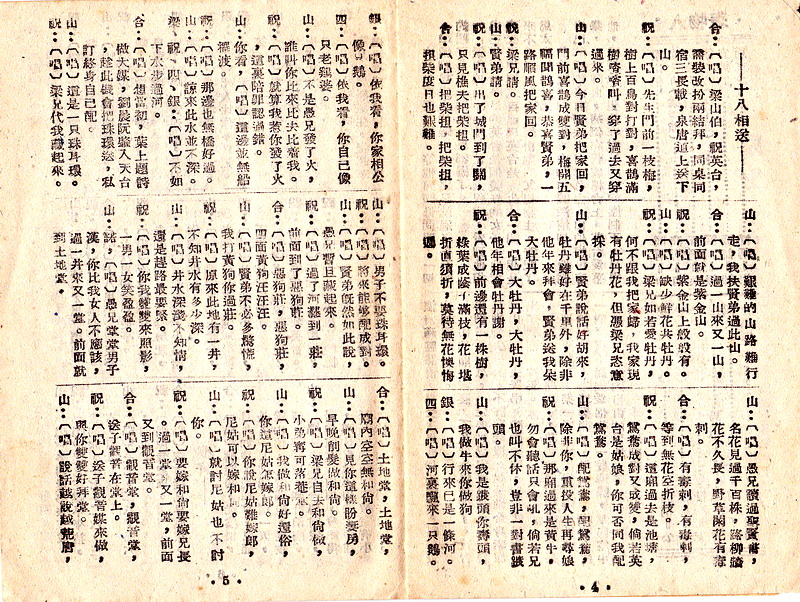 ——十八相送——
合：（唱）梁山伯，祝英台，
需要改扮兩結拜，同桌同
宿三長載，泉唐道上送下
山。
祝：（唱）先生門前一枝梅，
樹上百鳥對打對，喜鵲滿
樹喳喳叫，穿了過去又穿
過來。
山：（唱）今日賢弟把家回，
門前喜鳥成雙對，梅開五
福開鵲喜，恭喜賢弟，一
路順風把家回。
祝：梁兄請。
山：賢弟請。
祝：（唱）出了城門到了關，
只見樵夫把柴担。
合：（唱）把柴担，把柴担，
担柴度日也艱難。
山：（唱）艱難的山路難行
走，我扶賢弟過此山。
合：（唱）過一山來又一山，
前面就是紫金山。
祝：（唱）紫金山上般般有。
山：（唱）缺少鮮花共牡丹。
祝：（唱）梁兄如若愛牡丹，
何不跟我把家歸，我家現
有牡丹花，但憑梁兄恣意
採。
山：（唱）賢弟說話好胡來，
牡丹雖好在千里外，除非
他年來拜會，賢弟送我朵
大牡丹。
合：（唱）大牡丹，大牡丹，
他年相會牡丹謝。
祝：（唱）前邊還有一株樹，
綠葉成蔭子滿枝，花堪
折直須折，莫待無花懊悔
遲。
山：（唱）愚兄讀過聖賢書，
名花見過千百株，路柳牆
花不久長，野草閑花有毒
刺。
合：（唱）有毒刺，有毒刺，
等到無花空折枝。
祝：（唱）這廂過去是池塘，
鴛鴦成對又成雙，倘若英
台是姑娘，你可否同我配
鴛鴦。
山：（唱）配鴛鴦，配鴛鴦，
除非你，重投人生再尋娘
祝：（唱）那廂過來是黃牛，
勿會聽話只會吼，倘若兄
也叫不休，豈非一對書獃
頭。
山：（唱）我是獃頭你壽頭，
我做牛來你做狗。
銀：（唱）行來已是一條河。
四：（唱）河裏飄來一只鵝。
·4·
銀：（唱）依我看，你家相公
像白鵝。
四：（唱）依我看，你自己像
只老鷄婆。
山：（唱）不是愚兄發了火，
誰叫你比來比去比着我。
祝：（唱）就算我惹你發了火
，這裏陪罪認過錯。
山：你看，（唱）這邊並無船
擺渡。
祝：（唱）那邊也無橋好過。
山：（唱）諒來此水並不深。
梁、祝、四、銀：（唱）不如
下水步過河。
合：（唱）想當初，葉上題詩
做大媒，劉晨阮肇入天台
，趁此機會把珠環送，私
訂終身自己配。
山：（唱）這是一只珠耳環。
祝：（唱）梁兄代我藏起來。
山：（唱）男子不要珠耳環。
祝：（唱）將來能够配成對。
山：（唱）賢弟旣然如此說，
愚兄暫且藏起來。
祝：（唱）過了河灘到一莊，
前面到了惡狗莊。
合：（唱）惡狗莊，惡狗莊，
四面黃狗汪汪汪。
山：（唱）賢弟不必多驚慌，
我打黃狗你過莊。
祝：（唱）原來此地有一井，
不知井水有多少深。
山：（唱）井水深淺不知情，
還是趕路最要緊。
祝：（唱）你我雙雙來照影，
一男一女笑盈盈。
山：諾，（唱）愚兄堂堂男子
漢，你比我女人不應該，
過一井來又一井。前面就
到土地堂。
合：（唱）土地堂，土地堂，
廟內空空無和尙。
山：（唱）見你這樣盼妻房，
早晚削髮做和尙。
祝：（唱）梁兄自去和尙做，
小弟甯可落菴堂。
山：（唱）我做和尙好還俗，
你這尼姑怎嫁郎。
祝：（唱）你說尼姑難嫁郎，
尼姑可以嫁和尙。
山：（唱）就討尼姑也不討
你。
祝：（唱）要嫁和尙要嫁兄長
。過一堂來又一堂，前面
又到觀音堂。
合：（唱）觀音堂，觀音堂，
送子觀音在堂上。
祝：（唱）送子觀音媒來做，
與你雙雙好拜堂。
山：（唱）說話越說越荒唐，
·5·